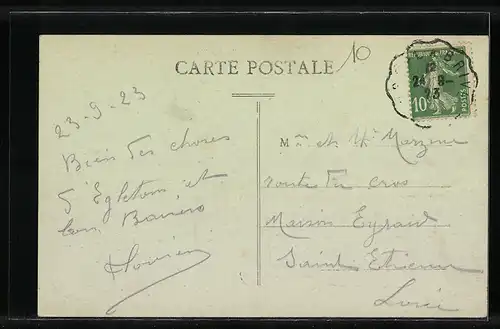 10
CARTE POSTALE
BRIV
24 8-
23
10
POSTES
23-9-23
Bien des choses
d'Egletons et
bons Baisers
Mme et Mr
route du cros
Maison Eyraud
Saint Etienne
Loire